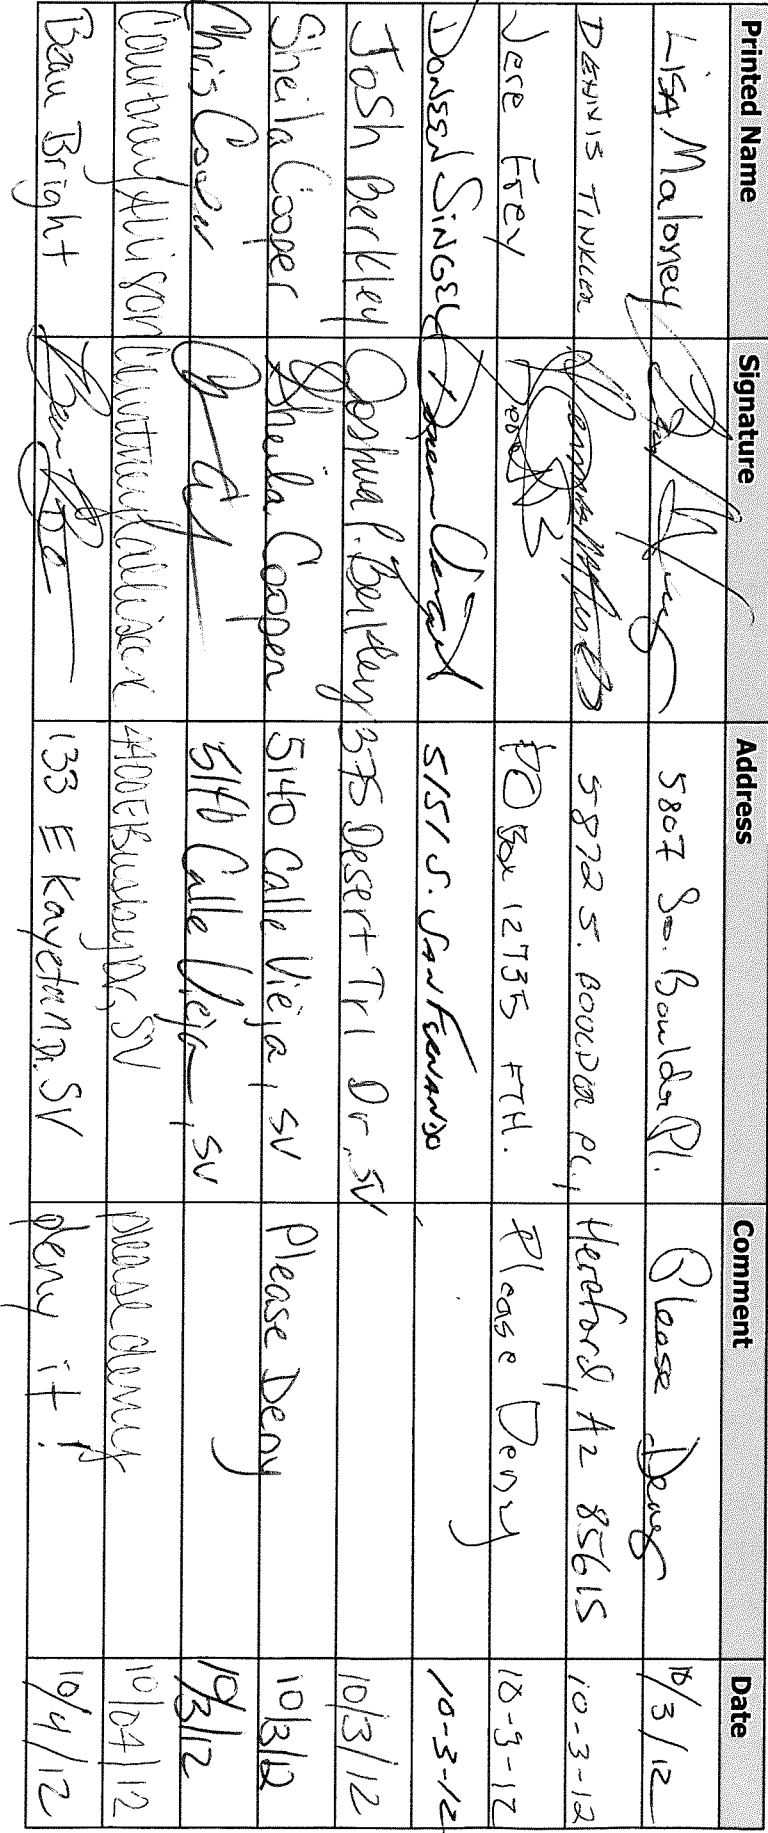 Printed Name Signature Address Comment Date
Lisa Maloney 5807 So. Boulder Pl. Please Deny 10/3/12
DENNIS TINKLER 5872 S. BOULDER PL, Hereford, AZ 85615 10-3-12
Jere Frey PO Box 12735 FTH. Please Deny 10-3-12
DONEEN 5151 S. SAN FERNANDO 10-3-12
Josh Berkley Joshua P. Berkley 375 Desert Trl Dr, SV 10/3/12
Sheila Cooper Sheila Cooper 5140 Calle Vieja, SV Please Deny 10/3/12
Chris 5140 Calle Vieja, SV 10/3/12
Courtney Allison Courtney Allison 4400 E Busby Dr, SV please deny 10/04/12
Beau Bright 133 E Kayetan Dr. SV deny it! 10/4/12